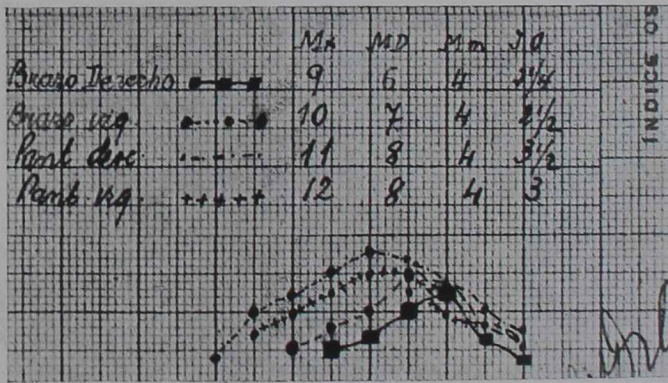 Mx MD Mm I O
Brazo Derecho 9 6 4
Brazo izq. 10 7 4 2 1/2
Pant derc. 11 8 4 3 1/2
Pant izq. 12 8 4 3
INDICE OS